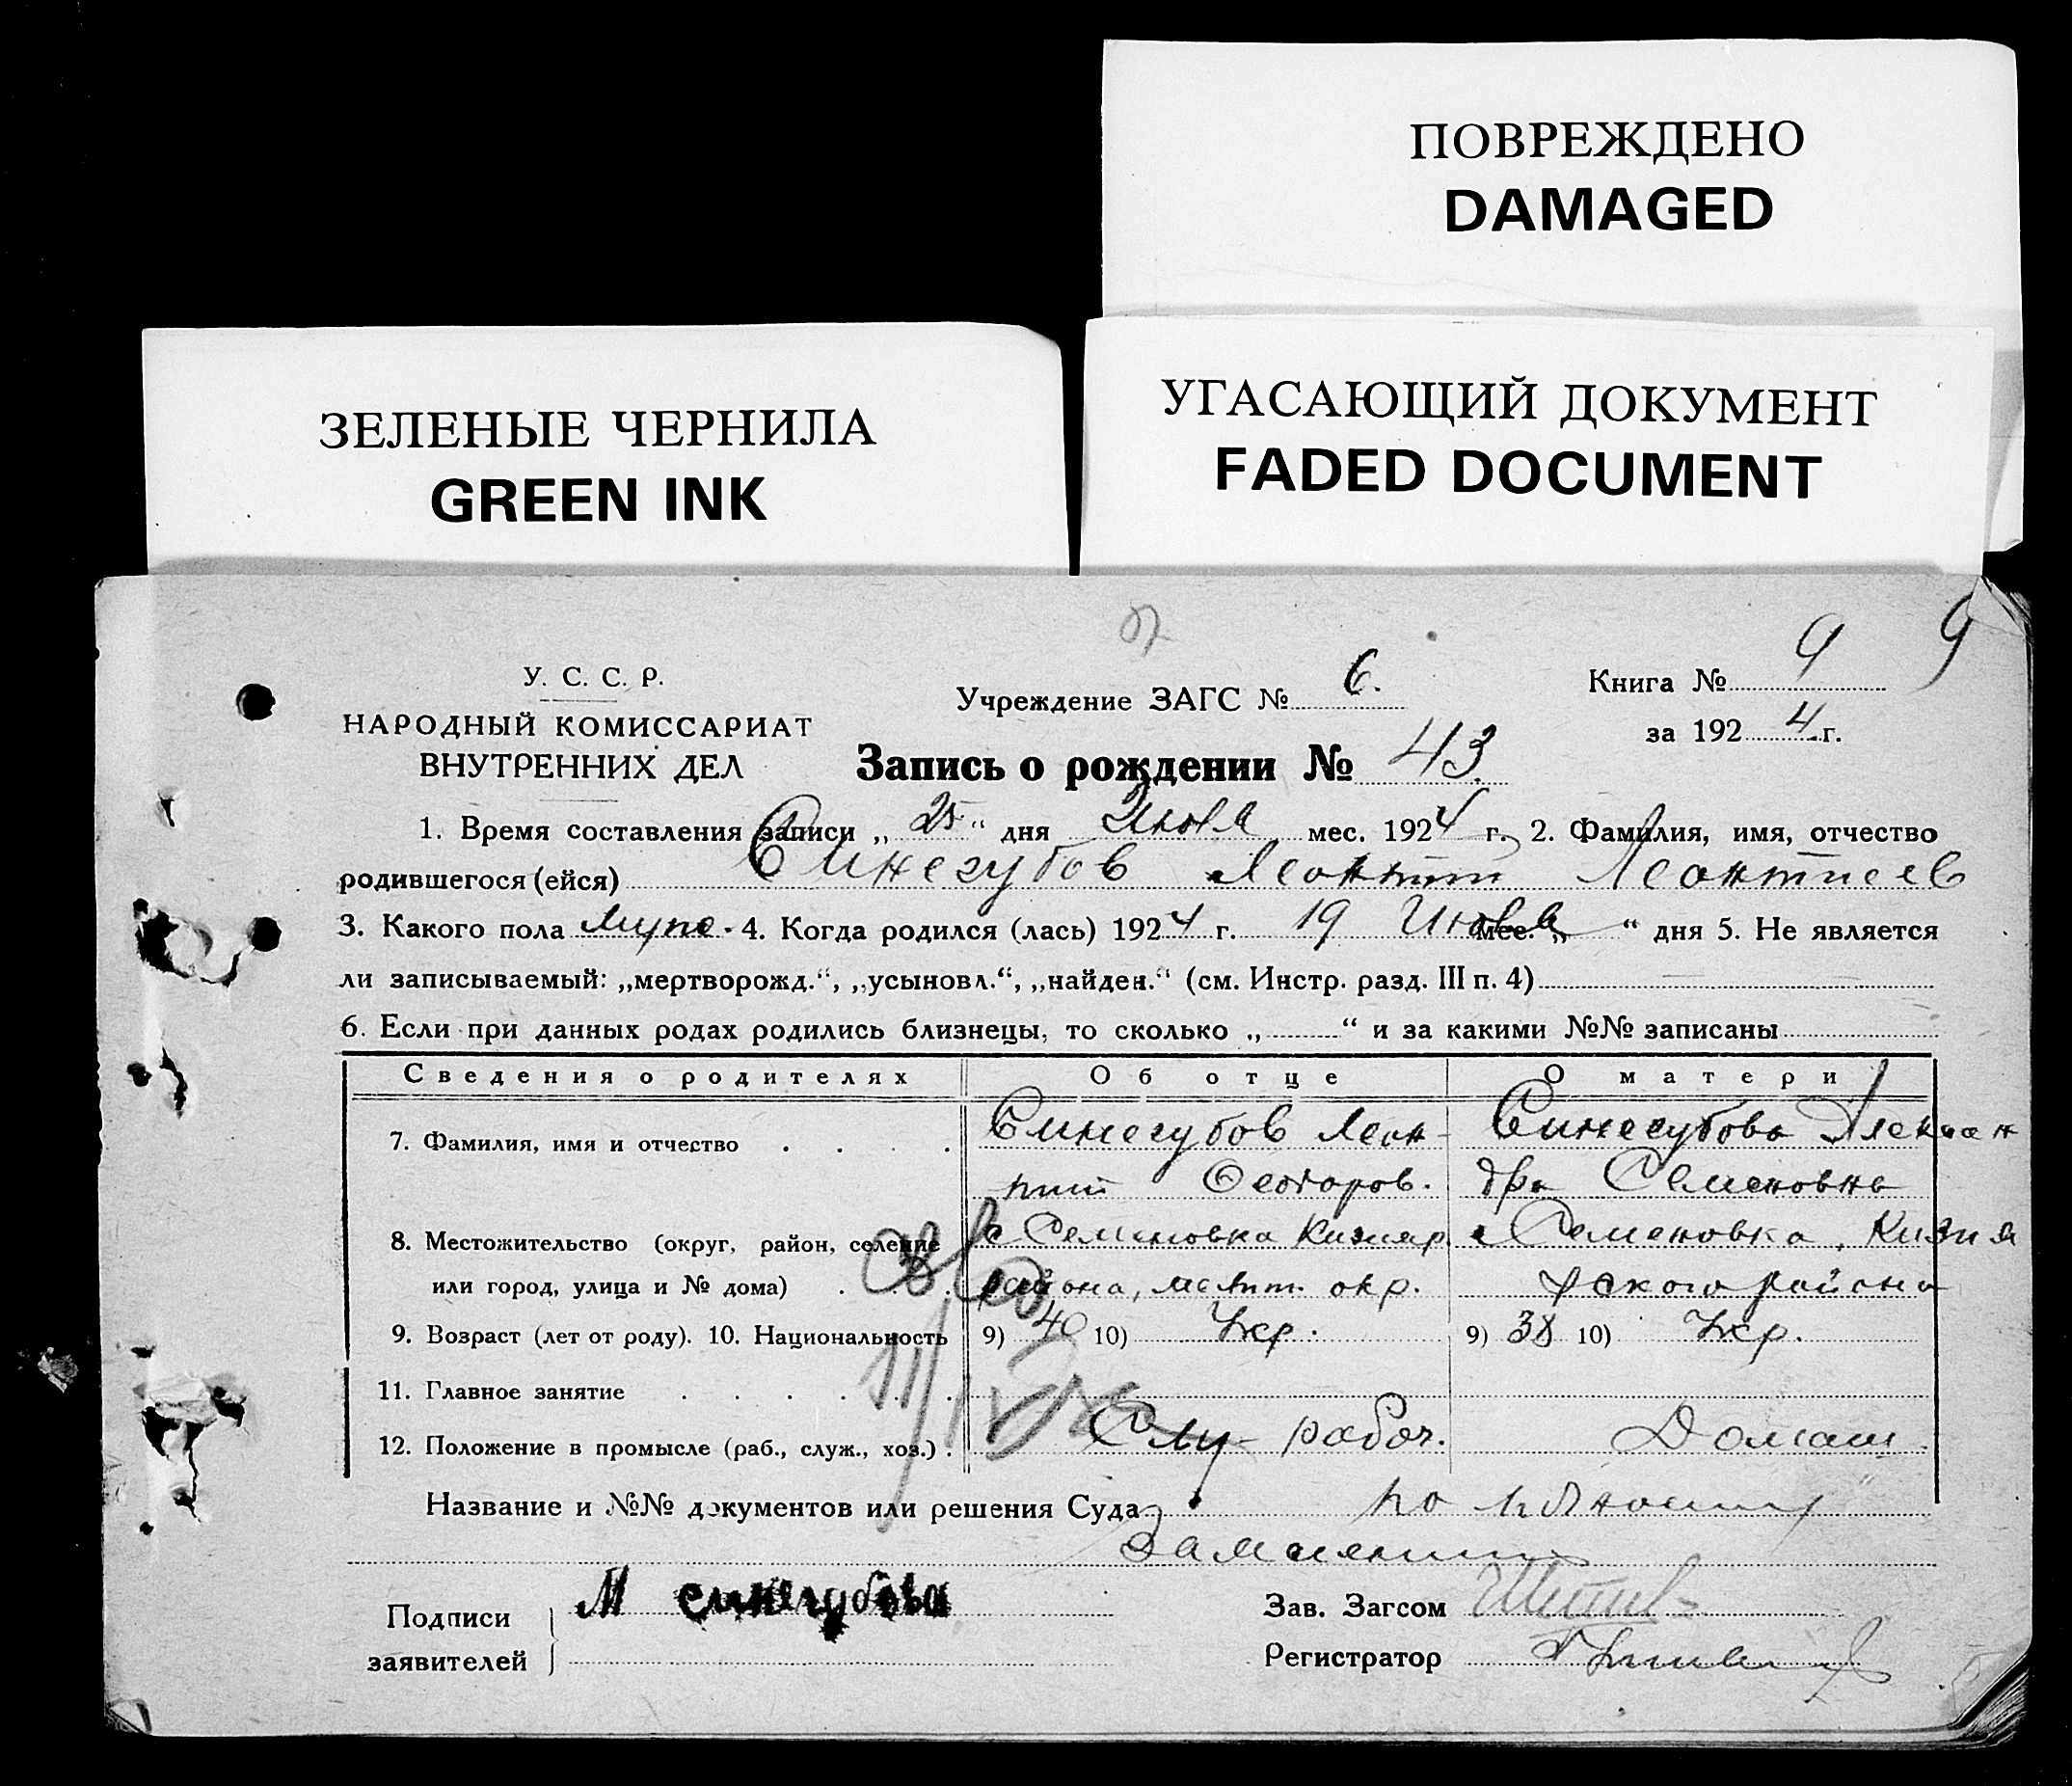 ПОВРЕЖДЕНО
DAMAGED
ЗЕЛЕНЫЕ ЧЕРНИЛА
GREEN INK
УГАСАЮЩИЙ ДОКУМЕНТ
FADED DOCUMENT
9
У. С. С. Р.
НАРОДНЫЙ КОМИССАРИАТ
ВНУТРЕННИХ ДЕЛ
Учреждение ЗАГС № 6.
Книга № 9
за 1924 г.
Запись о рождении № 43.
1. Время составления записи „ 25 “ дня Июля мес. 1924 г. 2. Фамилия, имя, отчество
родившегося (ейся) Синегубов Леонтий Леонтиев
3. Какого пола муж. 4. Когда родился (лась) 1924 г. 19 Июля мес. „ “ дня 5. Не является
ли записываемый: „мертворожд.“, „усыновл.“, „найден.“ (см. Инстр. разд. III п. 4)
6. Если при данных родах родились близнецы, то сколько „ “ и за какими №№ записаны
Сведения о родителях Об отце О матери
7. Фамилия, имя и отчество Синегубов Леон- Синегубова Алексан
тий Феодоров. дра Семеновна
8. Местожительство (округ, район, селение с Семеновка Кизияр. с Семеновка, Кизия
или город, улица и № дома) района, Мелит. окр. рского района
9. Возраст (лет от роду). 10. Национальность 9) 40 10) Укр. 9) 38 10) Укр.
11. Главное занятие
12. Положение в промысле (раб., служ., хоз.) Слу рабоч. Домаш.
Название и №№ документов или решения Суда по
Подписи М синегубова Зав. Загсом
заявителей Регистратор